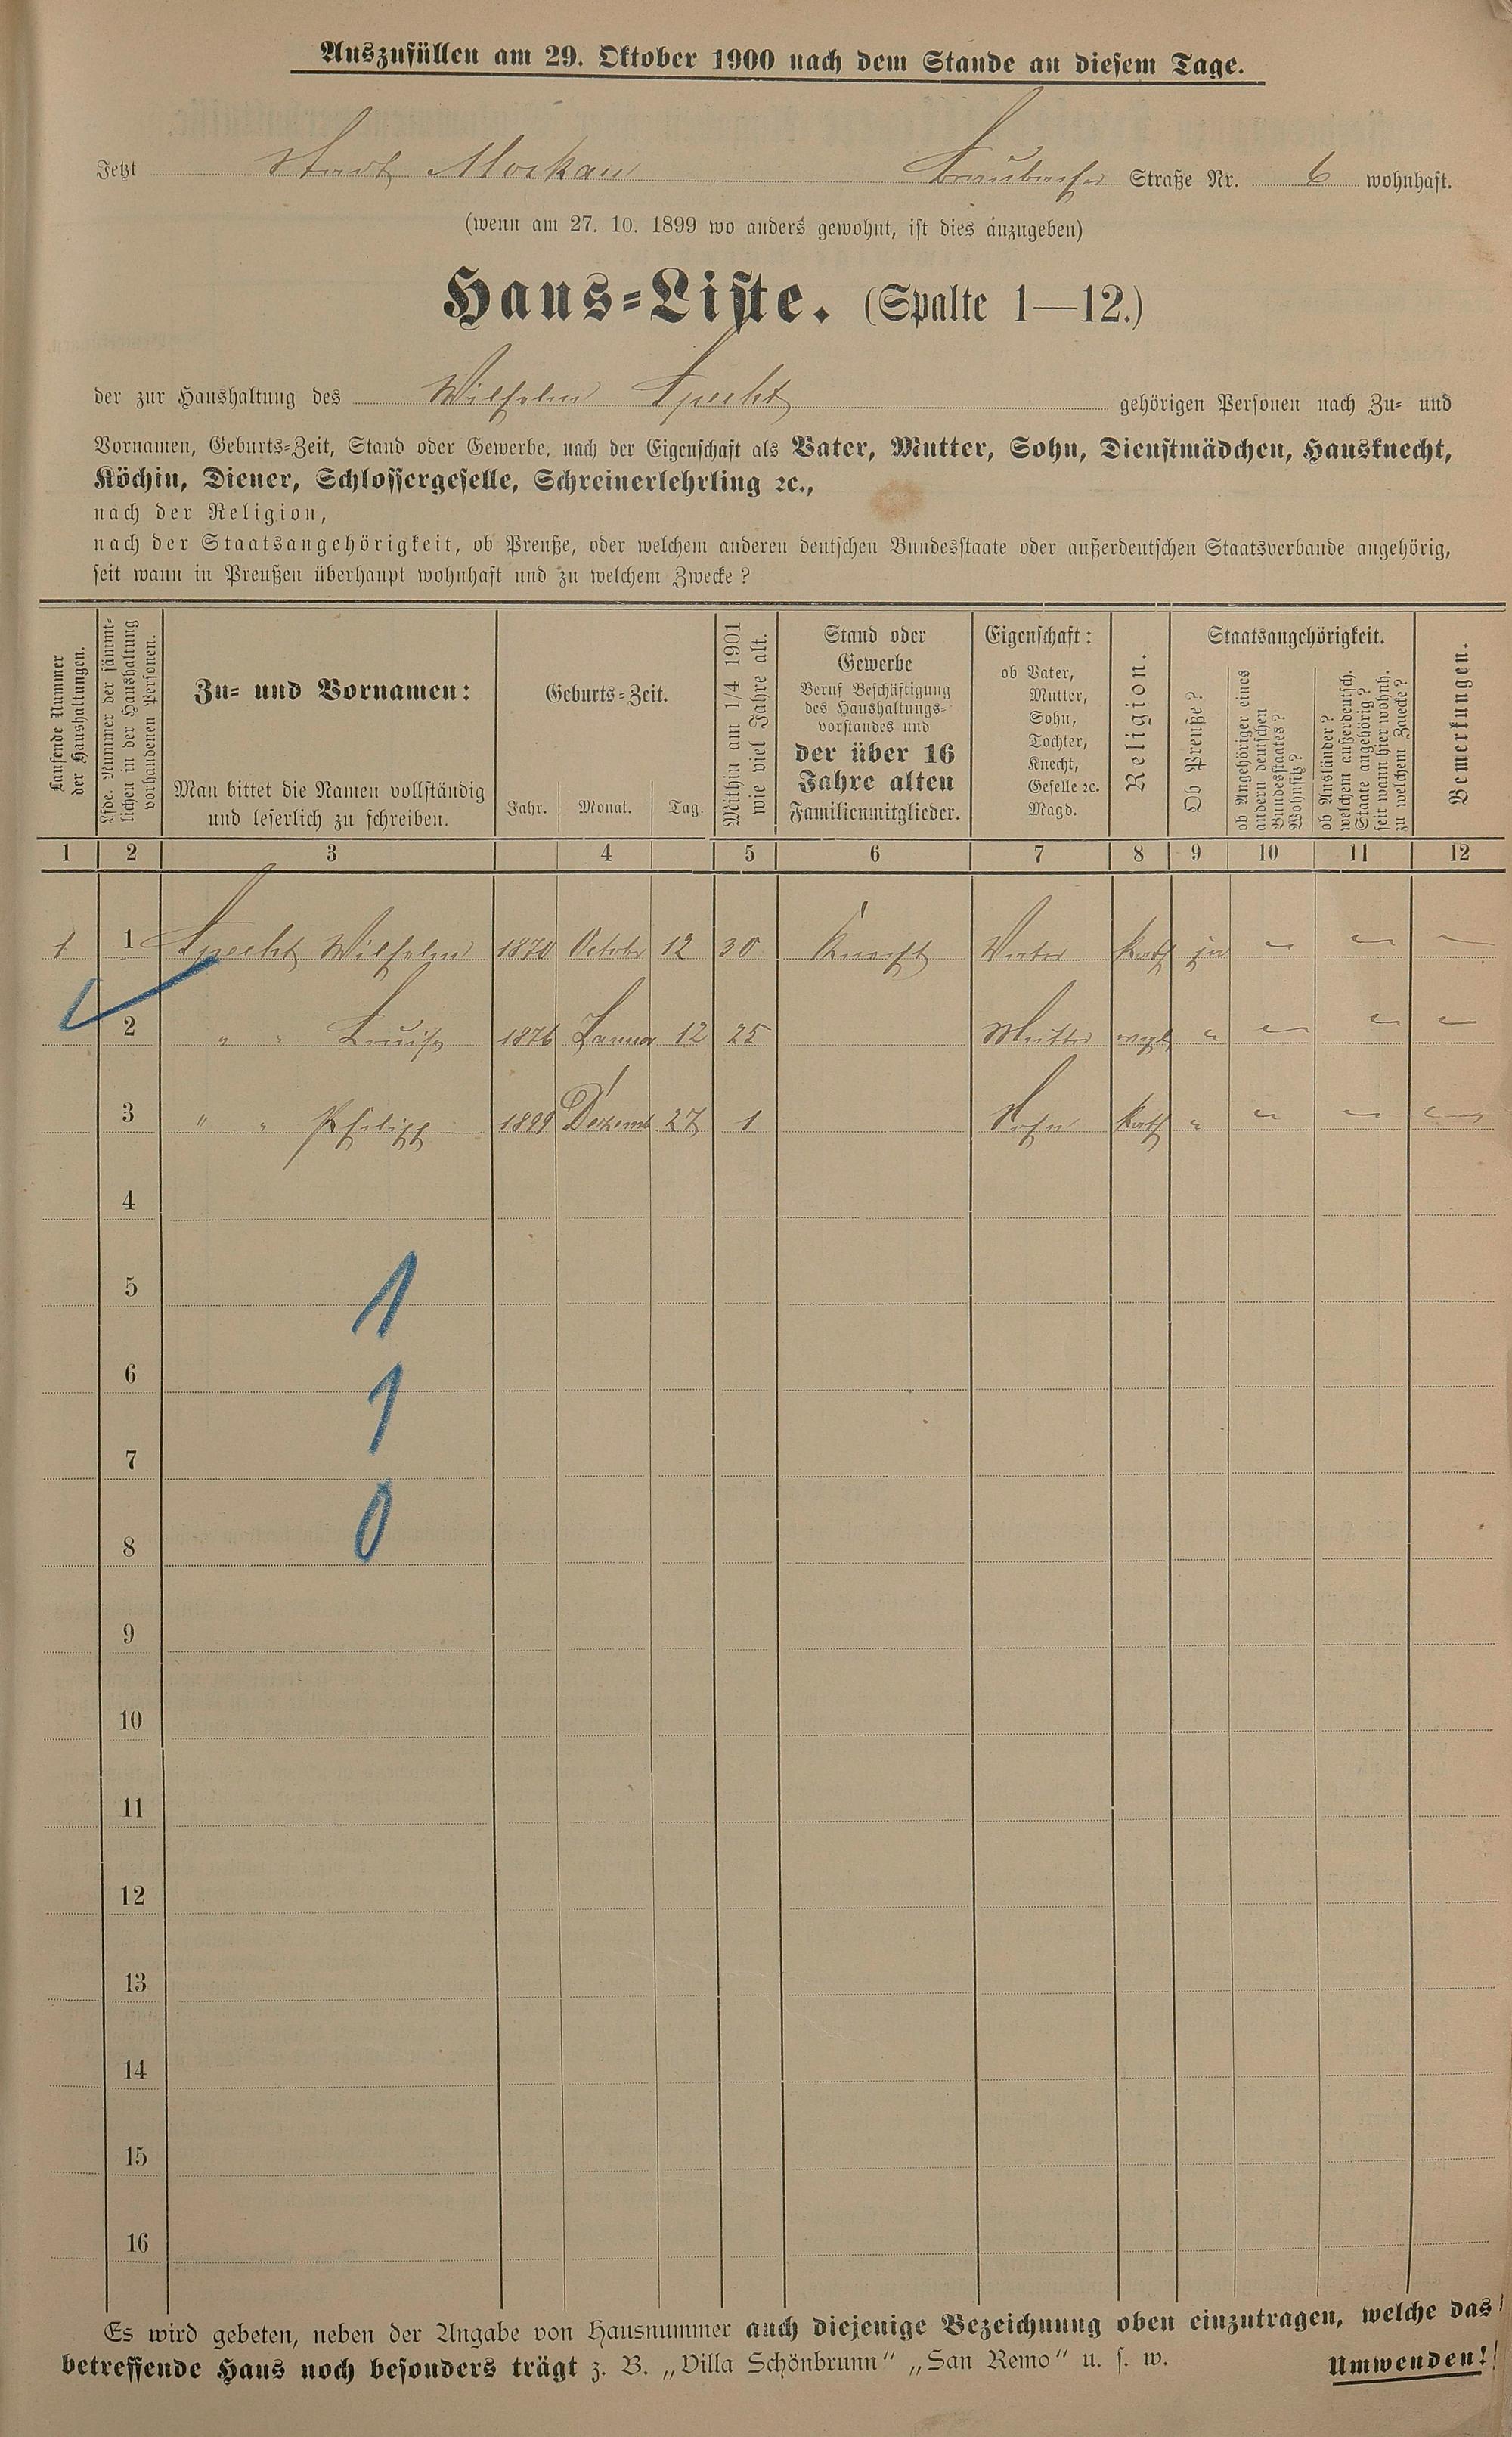 Auszufüllen am 29. Oktober 1900 nach dem Stande an diesem Tage.
Jetzt Stadt Moskau Braubacher Straße Nr. 6 wohnhaft.
(wenn am 27. 10. 1899 wo anders gewohnt, ist dies anzugeben)
Haus-Liste. (Spalte 1—12.)
der zur Haushaltung des Wilhelm Specht gehörigen Personen nach Zu- und
Vornamen, Geburts-Zeit, Stand oder Gewerbe, nach der Eigenschaft als Vater, Mutter, Sohn, Dienstmädchen, Hausknecht,
Köchin, Diener, Schlossergeselle, Schreinerlehrling ꝛc.,
nach der Religion,
nach der Staatsangehörigkeit, ob Preuße, oder welchem anderen deutschen Bundesstaate oder außerdeutschen Staatsverbande angehörig,
seit wann in Preußen überhaupt wohnhaft und zu welchem Zwecke?
Laufende Nummer
der Haushaltungen.
Lfde. Nummer der sämmt-
lichen in der Haushaltung
vorhandenen Personen.
Zu- und Vornamen:
Man bittet die Namen vollständig
und leserlich zu schreiben.
Geburts-Zeit.
Jahr. Monat. Tag.
Mithin am 1/4 1901
wie viel Jahre alt.
Stand oder
Gewerbe
Beruf Beschäftigung
des Haushaltungs-
vorstandes und
der über 16
Jahre alten
Familienmitglieder.
Eigenschaft:
ob Vater,
Mutter,
Sohn,
Tochter,
Knecht,
Geselle ꝛc.
Magd.
Religion.
Staatsangehörigkeit.
Ob Preuße?
ob Angehöriger eines
andern deutschen
Bundesstaates?
Wohnsitz?
ob Ausländer?
welchem außerdeutsch.
Staate angehörig?
seit wann hier wohnh.
zu welchem Zwecke?
Bemerkungen.
1 2 3 4 5 6 7 8 9 10 11 12
1 1 Specht Wilhelm 1870 October 12 30 Knecht Vater Kath ja " " "
2 " " Luise 1876 Januar 12 25 Mutter evgl " " " "
3 " " Philipp 1899 Dezemb 27 1 Sohn Kath " " " "
4
5
1
6
1
7
0
8
9
10
11
12
13
14
15
16
Es wird gebeten, neben der Angabe von Hausnummer auch diejenige Bezeichnung oben einzutragen, welche das
betreffende Haus noch besonders trägt z. B. „Villa Schönbrunn“ „San Remo“ u. s. w.
Umwenden!